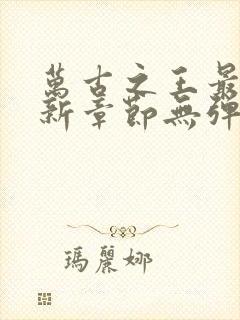 萬古之王最
新章節無彈
瑪麗娜